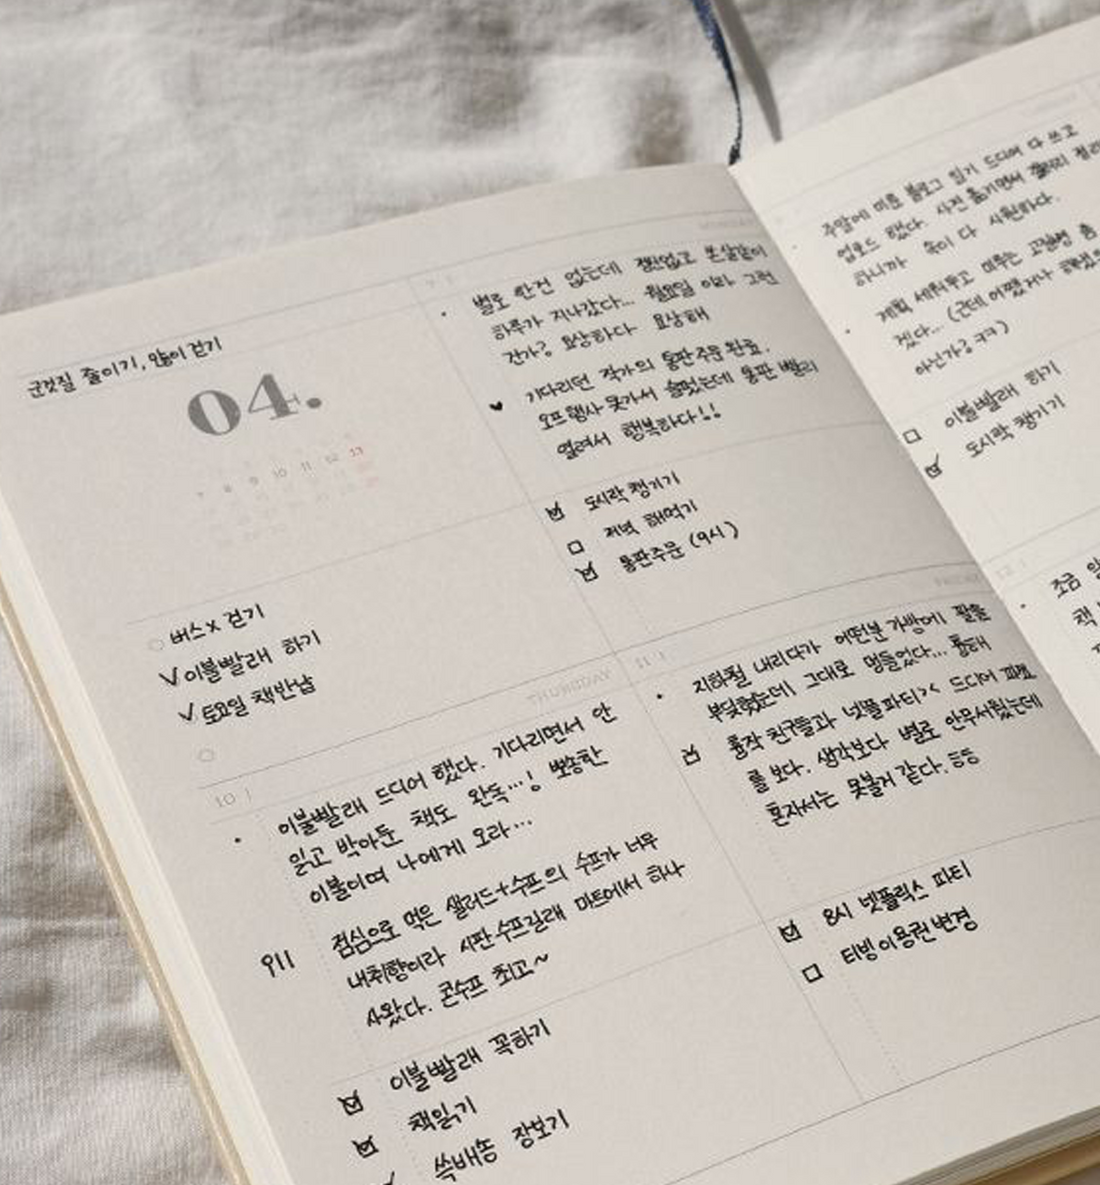 군것질 줄이기, 많이 걷기
04.
7 8 9 10 11 12 13
버스x 걷기
이불빨래 하기
토요일 책반납
별로 한건 없는데 정신없고 몬살같이
하루가 지나갔다... 월요일 이라 그런
건가? 요상하다 요상해
기다리던 작가의 통판주문완료.
오프행사 못가서 슬펐는데 통판 빨리
열려서 행복하다!!
도시락 챙기기
저녁 해먹기
통판주문 (9시)
THURSDAY
10
이불빨래 드디어 했다. 기다리면서 안
읽고 박아둔 책도 완독...! 뽀송한
이불이여 나에게 오라...
점심으로 먹은 샐러드+수프의 수프가 너무
내취향이라 시판수프길래 마트에서 하나
사왔다. 콘수프 최고~
이불빨래 꼭하기
책읽기
쓱배송 장보기
FRIDAY
11
지하철 내리다가 어떤분 가방에 팔을
부딪혔는데 그대로 멍들었다... 통해
홈작 친구들과 넷플파티>< 드디어
를 보다. 생각보다 별로 안무서웠는데
혼자서는 못볼거 같다. ㅎㅎ
8시 넷플릭스 파티
티빙이용권변경
주말에 미룬 블로그 일기 드디어 다 쓰고
업로드 했다. 사진 옮기면서 갤러리 정리
하니까 속이 다 시원하다.
계획 세워두고 미루는 고질병 좀
겠다... (근데 어쨌거나
아닌가? ㅋㅋ)
이불빨래 하기
도시락 챙기기
12
조금
책